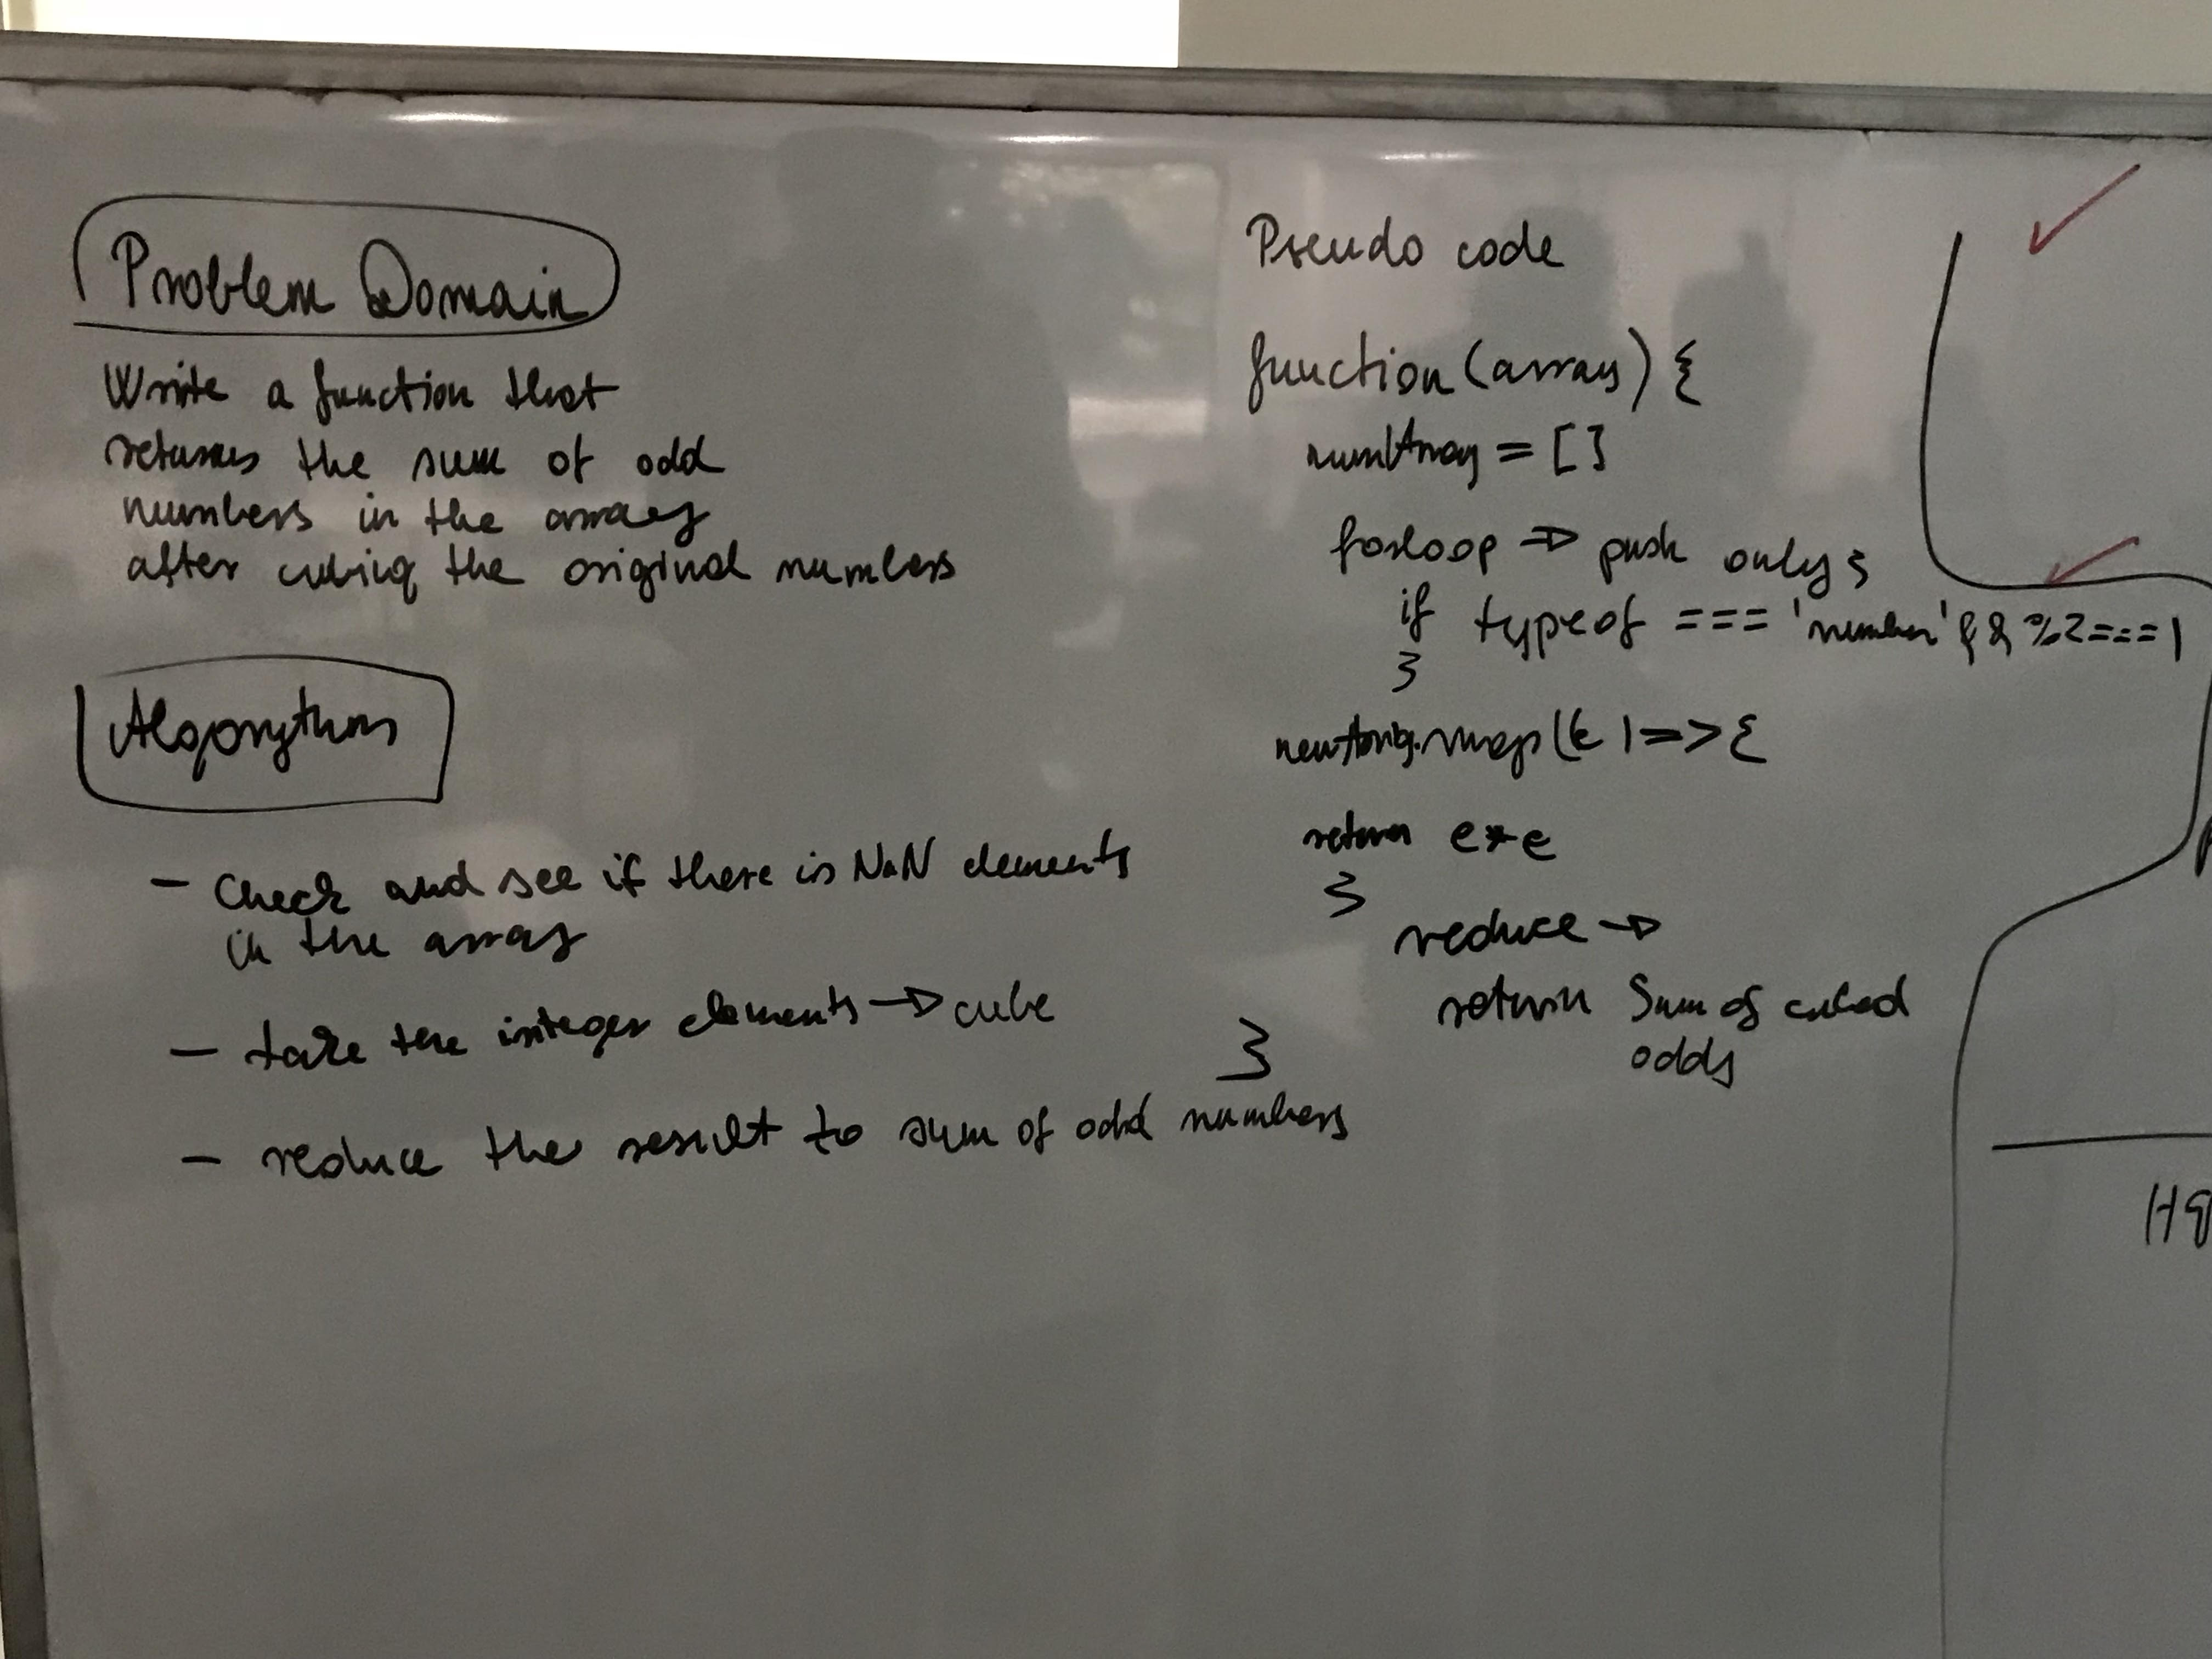 Problem Domain
Write a function that
returns the sum of odd
numbers in the array
after cubing the original numbers
Algorythm
- Check and see if there is NaN elements
in the array
- take the integer elements → cube
- reduce the result to sum of odd numbers
Pseudo code
function (array) {
numArray = []
forloop ⇒ push only {
if typeof === 'number' && %2===1
}
.map((e) => {
return e*e
}
reduce →
return Sum of cubed
odds
}